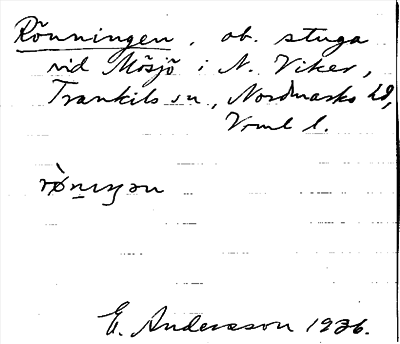 Rönningen, ob. stuga
vid Mösjö i N. Viker,
Trankils sn, Nordmarks hd,
Vrml l.
rø̀nıŋən
E. Andersson 1936.